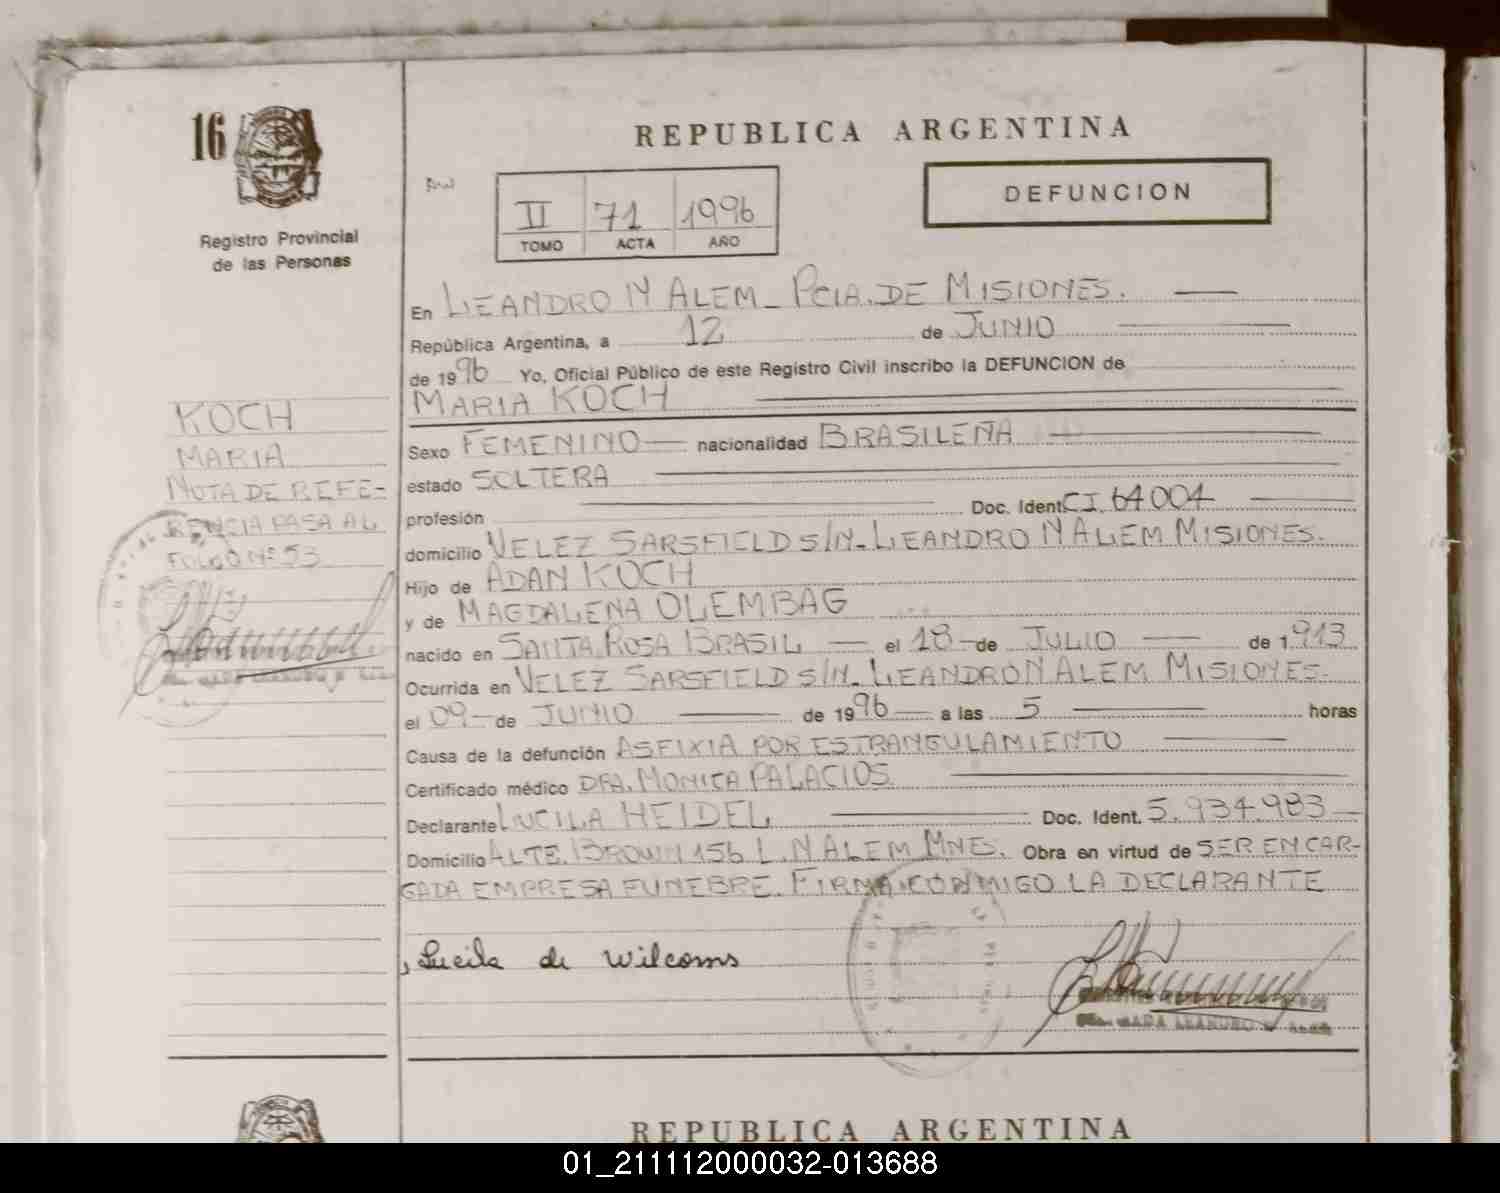 16
Registro Provincial
de las Personas
REPUBLICA ARGENTINA
DEFUNCION
II 71 1996
TOMO ACTA AÑO
En LEANDRO N ALEM - PCIA. DE MISIONES.
República Argentina, a 12 de JUNIO
de 1996 Yo, Oficial Público de este Registro Civil inscribo la DEFUNCION de
MARIA KOCH
Sexo FEMENINO nacionalidad BRASILEÑA
estado SOLTERA
profesión Doc. Ident. C.I. 64004
domicilio VELEZ SARSFIELD S/N. LEANDRO N ALEM MISIONES.
Hijo de ADAN KOCH
y de MAGDALENA OLEMBAG
nacido en SANTA ROSA BRASIL el 18 de JULIO de 1.913
Ocurrida en VELEZ SARSFIELD S/N. LEANDRO N ALEM MISIONES.
el 09 de JUNIO de 1996 a las 5 horas
Causa de la defunción ASFIXIA POR ESTRANGULAMIENTO
Certificado médico DRA. MONICA PALACIOS
Declarante LUCILA HEIDEL Doc. Ident. 5.934.983
Domicilio ALTE. BROWN 156 L. N ALEM MNES. Obra en virtud de SER ENCAR-
GADA EMPRESA FUNEBRE. FIRMA CONMIGO LA DECLARANTE
Lucila de Wilcoms
KOCH
MARIA
NOTA DE REFE-
RENCIA PASA AL
FOLIO Nº 53
REPUBLICA ARGENTINA
01_211112000032-013688